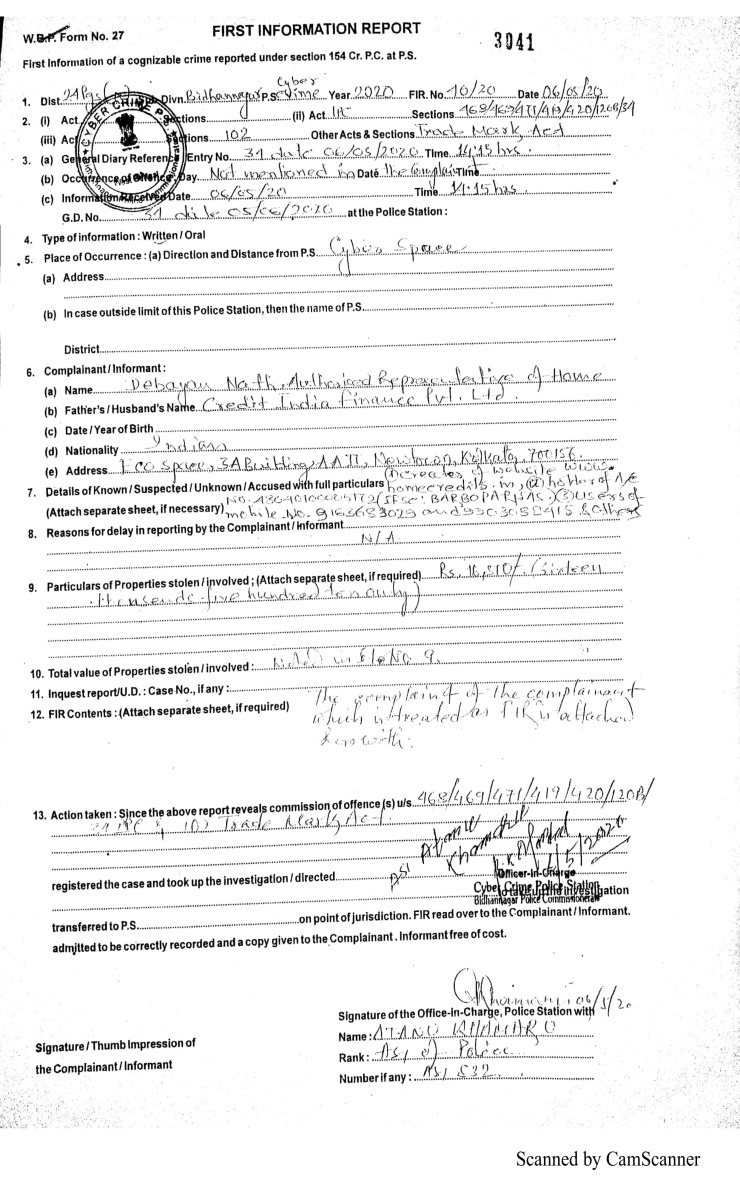 W.B.P. Form No. 27
FIRST INFORMATION REPORT
3041
First Information of a cognizable crime reported under section 154 Cr. P.C. at P.S.
1. Dist 24 Pgs (N) Divn. Bidhannagar P.S. Cyber Crime Year 2020 FIR. No. 10/20 Date 06/05/20
2. (i) Act Sections (ii) Act IPC Sections 468/469/471/419/420/120B/34
(iii) Act Sections 102 Other Acts & Sections Trade Mark Act
CYBER CRIME P.S.
3. (a) General Diary Reference Entry No. 31 date 06/05/2020 Time 14:15 hrs.
(b) Occurrence of offence Day Not mentioned in Date the Complaint Time
(c) Information Received Date 06/05/20 Time 14:15 hrs
G.D. No. 31 date 05/06/2020 at the Police Station :
4. Type of information : Written / Oral
5. Place of Occurrence : (a) Direction and Distance from P.S. Cyber Space
(a) Address
(b) In case outside limit of this Police Station, then the name of P.S.
District
6. Complainant / Informant :
(a) Name Debayan Nath, Authorised Representative of Home
(b) Father's / Husband's Name Credit India Finance Pvt. Ltd.
(c) Date / Year of Birth
(d) Nationality Indian
(e) Address Eco Space, 3A Building, AA II, Newtown, Kolkata, 700156.
7. Details of Known / Suspected / Unknown / Accused with full particulars (1) creates of website www.
homecredits.in, (2) holder of A/C
(Attach separate sheet, if necessary) No. (IFSC: (3) users of
mobile No. and & others
8. Reasons for delay in reporting by the Complainant / Informant
N/A
9. Particulars of Properties stolen / involved ; (Attach separate sheet, if required) Rs. 16,510/- (Sixteen
thousands five hundred ten only)
10. Total value of Properties stolen / involved : Noted in No 9.
11. Inquest report/U.D. : Case No., if any :
12. FIR Contents : (Attach separate sheet, if required) The complaint of the complainant
which is treated as FIR is attached
herewith.
13. Action taken : Since the above report reveals commission of offence (s) u/s 468/469/471/419/420/120B/
34 IPC & 102 Trade Mark Act.
registered the case and took up the investigation / directed ASI Atanu
Officer-in-Charge
Cyber Crime Police Station
to take up the investigation
Bidhannagar Police Commissionerate
transferred to P.S. on point of jurisdiction. FIR read over to the Complainant / Informant.
admitted to be correctly recorded and a copy given to the Complainant . Informant free of cost.
06/5/20
Signature of the Office-in-Charge, Police Station with
Name : ATANU
Signature / Thumb Impression of
the Complainant / Informant
Rank : ASI of Police
Number if any : ASI 532
Scanned by CamScanner